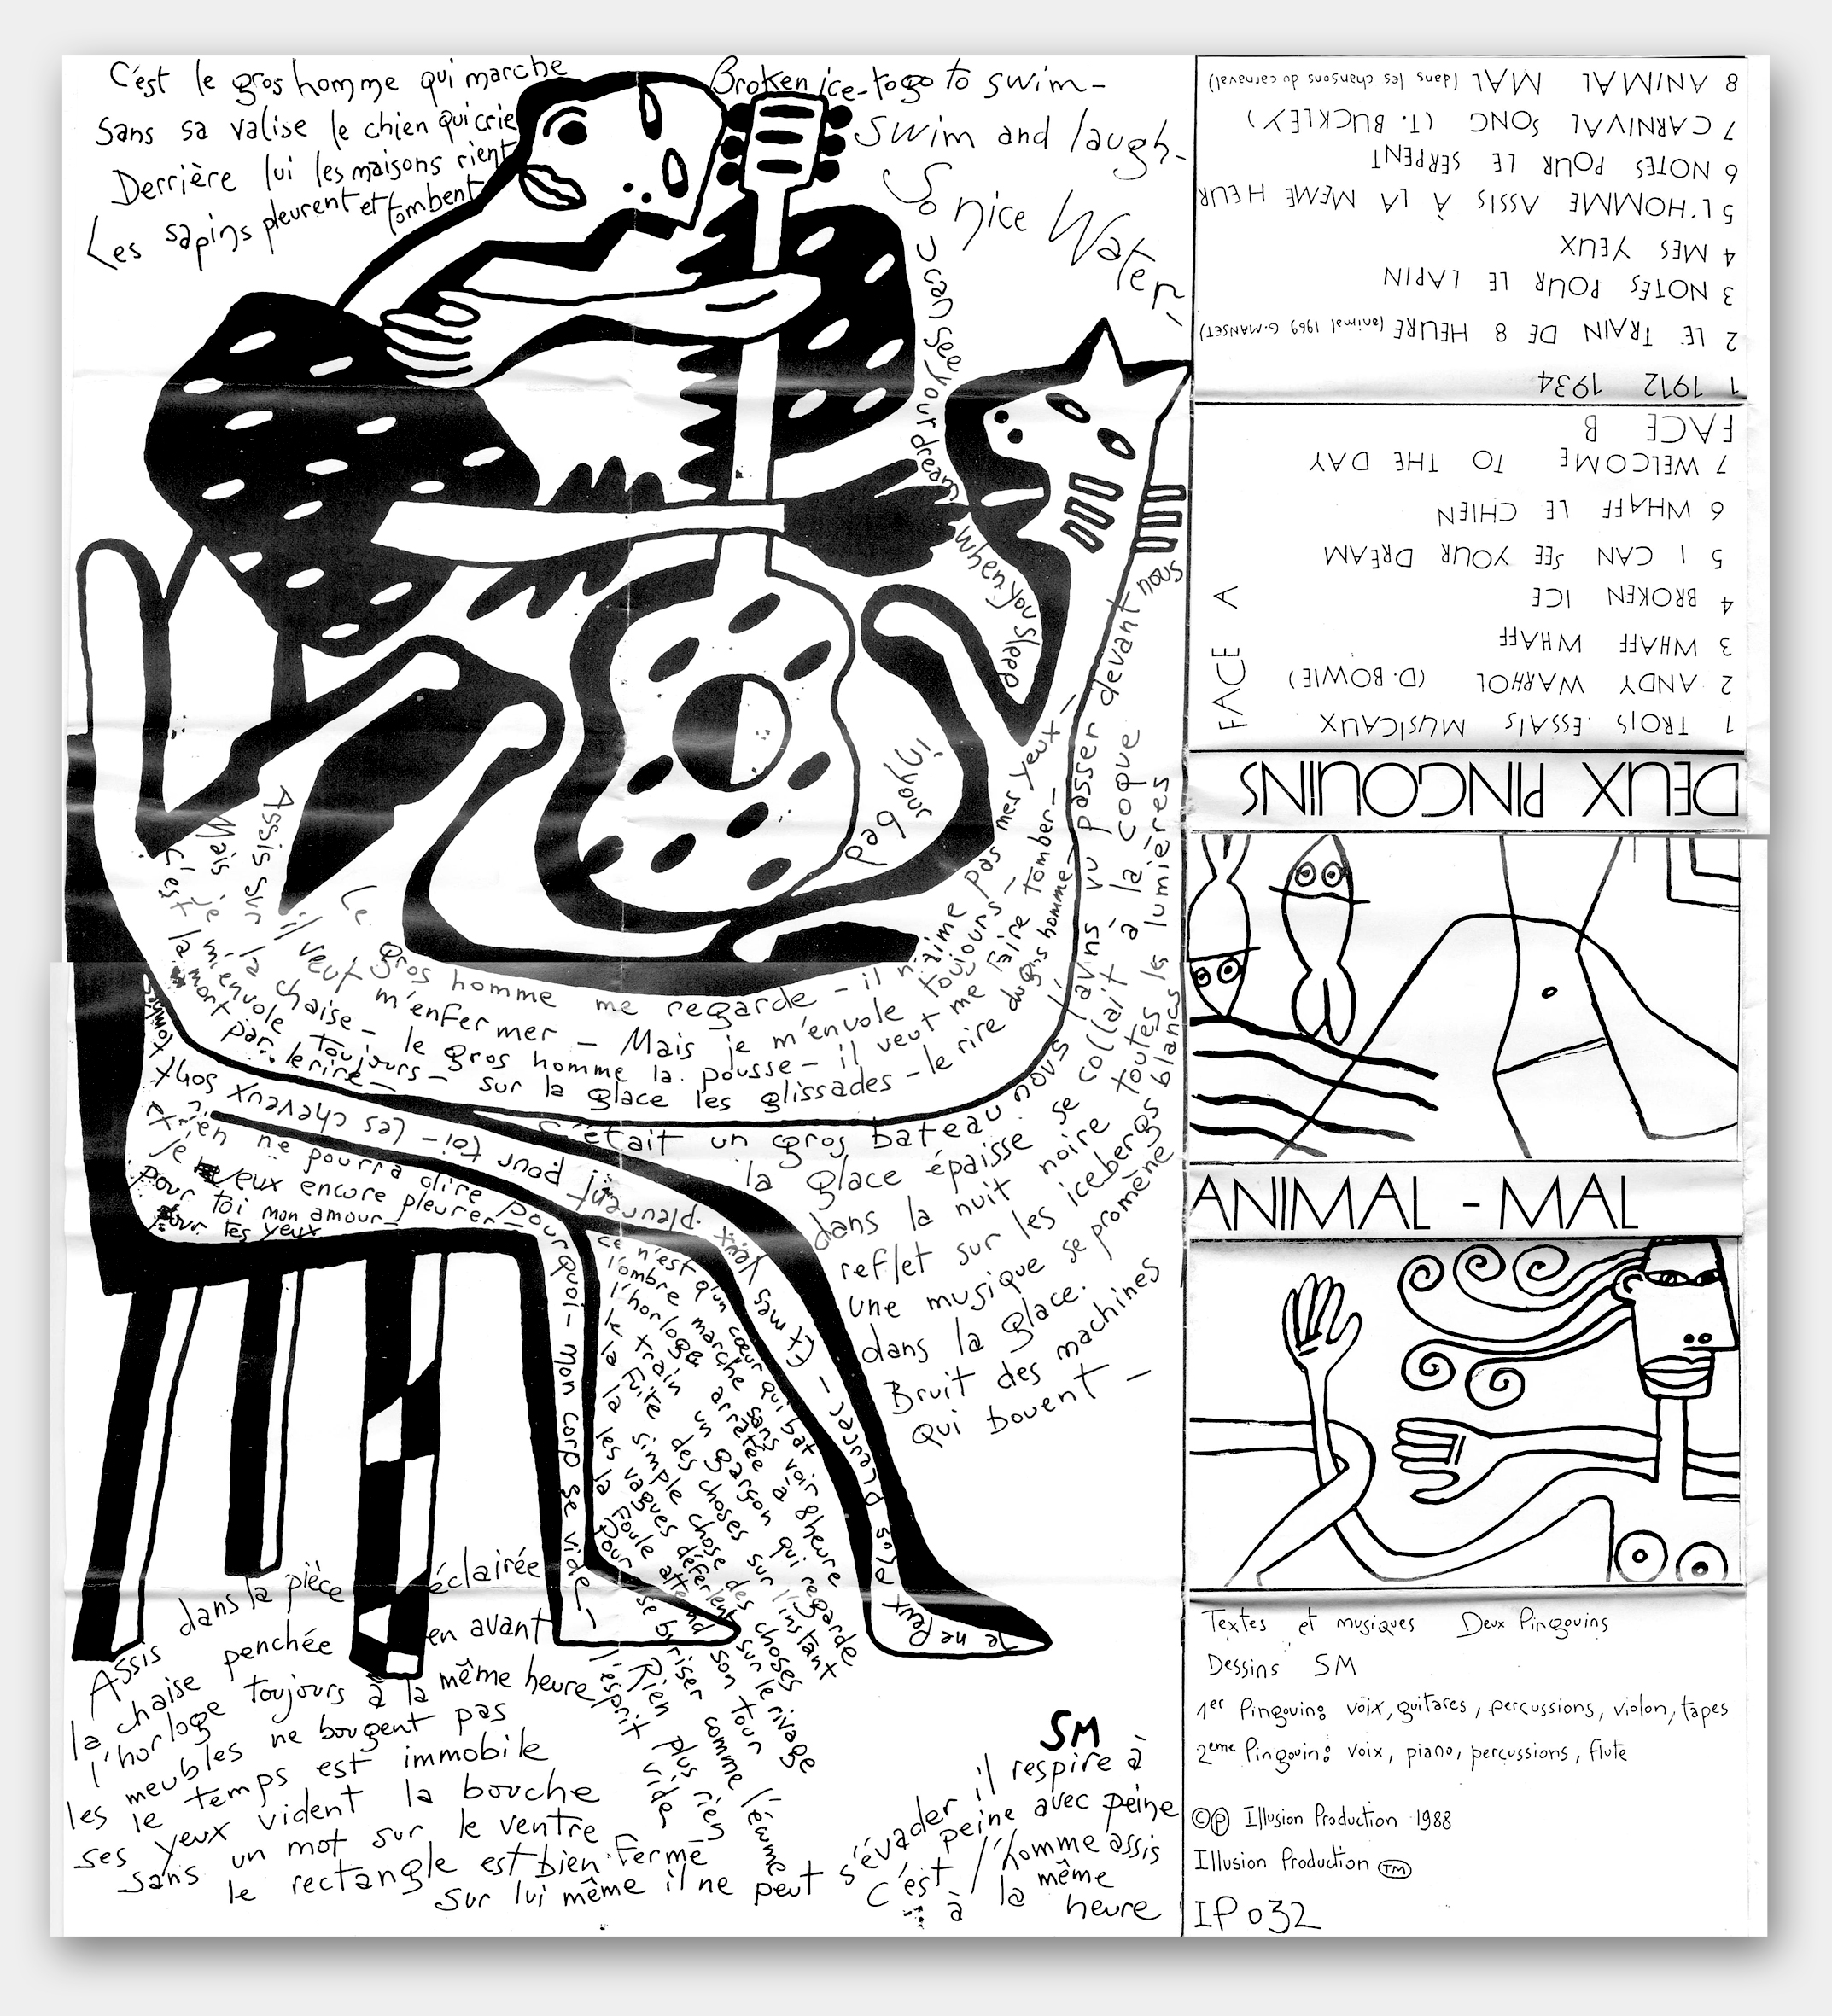 C'est le gros homme qui marche
Sans sa valise le chien qui crie
Derrière lui les maisons rient
Les sapins pleurent et tombent
Broken ice - to go to swim -
Swim and laugh -
So nice Water -
U can see your dream when you sleep
in your bed
Le gros homme me regarde - il n'aime pas mes yeux -
il veut m'enfermer - Mais je m'envole toujours -
Assis sur la chaise - le gros homme la pousse - il veut me faire tomber -
Mais je m'envole toujours - sur la glace les glissades - le rire du gros homme -
C'est la mort par le rire -
C'était un gros bateau nous l'avins vu passer devant nous
la glace épaisse se collait à la coque
dans la nuit noire toutes les lumières
reflet sur les icebergs blancs
une musique se promène
dans la glace.
Bruit des machines
qui bouent -
Je ne peux plus pleurer - Et mes yeux pleurent pour toi - les cheveux sont
rien ne pourra dire pourquoi - mon corp se vide -
je veux encore pleurer -
pour toi mon amour -
pour tes yeux
ce n'est qu'un cœur qui bat
l'ombre marche sans voir
l'horloge arrêtée à 8 heure
le train un garçon qui regarde
la fuite des choses sur l'instant
la simple chose des choses
les vagues déferlent sur le rivage
la foule attend son tour
pour se briser comme l'écume
Rien plus rien
l'esprit vide
Assis dans la pièce éclairée
la chaise penchée en avant
l'horloge toujours à la même heure
les meubles ne bougent pas
le temps est immobile
ses yeux vident la bouche
sans un mot sur le ventre
le rectangle est bien fermé
sur lui même il ne peut s'évader il respire à
peine avec peine
c'est l'homme assis
à la même
heure
SM
8 ANIMAL MAL (dans les chansons du carnaval)
7 CARNIVAL SONG (T. BUCKLEY)
6 NOTES POUR LE SERPENT
5 L'HOMME ASSIS À LA MEME HEUR
4 MES YEUX
3 NOTES POUR LE LAPIN
2 LE TRAIN DE 8 HEURE (animal 1969 G. MANSET)
1 1912 1934
FACE B
7 WELCOME TO THE DAY
6 WHAFF LE CHIEN
5 I CAN SEE YOUR DREAM
4 BROKEN ICE
3 WHAFF WHAFF
2 ANDY WARHOL (D. BOWIE)
1 TROIS ESSAIS MUSICAUX
FACE A
DEUX PINGOUINS
ANIMAL - MAL
Textes et musiques Deux Pingouins
Dessins SM
1er Pingouin: voix, guitares, percussions, violon, tapes
2eme Pingouin: voix, piano, percussions, flute
©℗ Illusion Production 1988
Illusion Production TM
IP 032